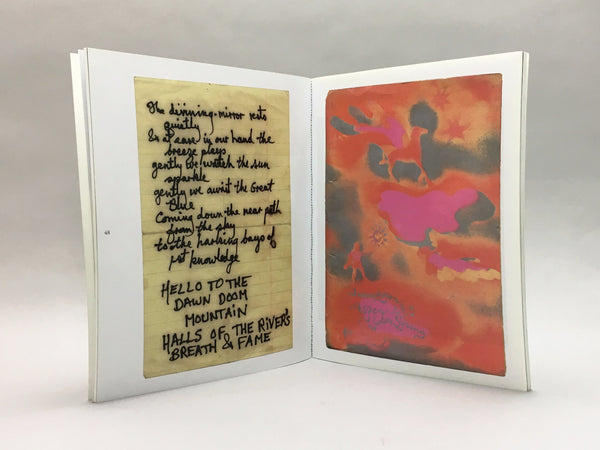 The divining-mirror rests
quietly
& at ease in our hand the
breeze plays
gently we watch the sun
sparkle
gently we await the Great
Blue
Coming down the near path
from the sky
to the harking bays of
1st knowledge
HELLO TO THE
DAWN DOOM
MOUNTAIN
HALLS OF THE RIVER'S
BREATH & FAME